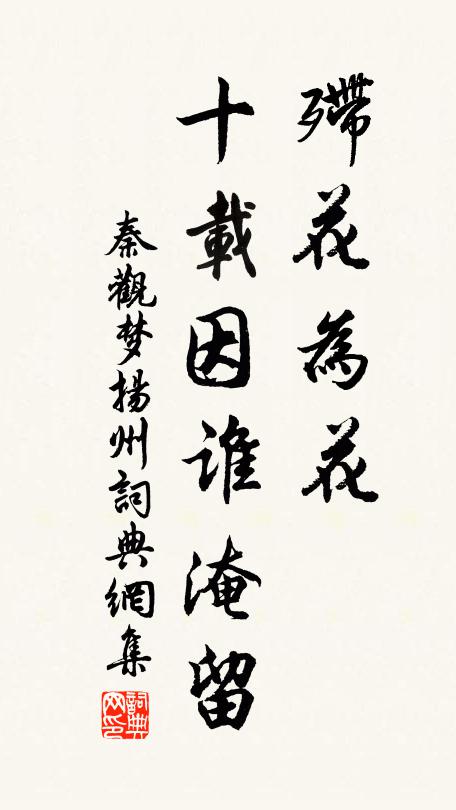 殢花為花
十載因誰淹留
秦觀梦揚州詞典網集
詞典网印